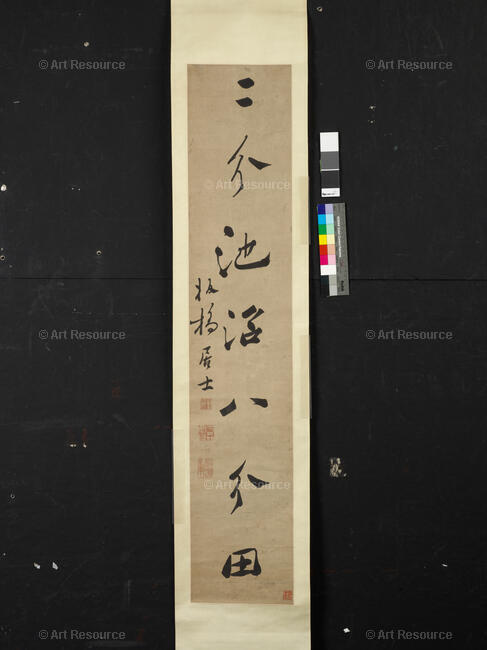 © Art Resource
© Art Resource
二分池沼八分田
板橋居士
© Art Resource
© Art Resource
© Art Resource
© Art Resource
© Art Resource
© Art Resource